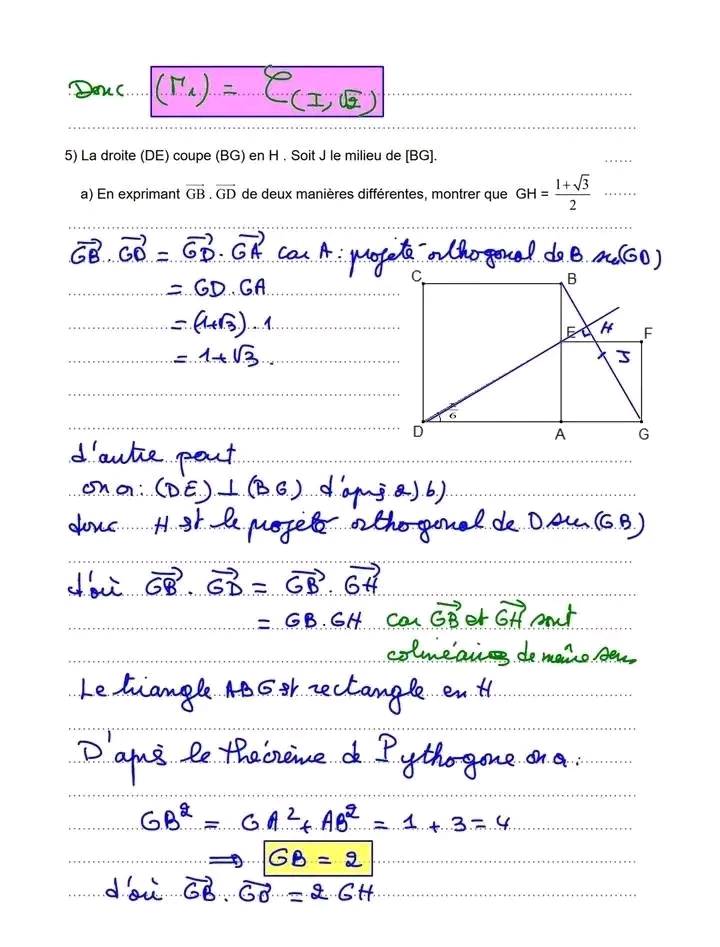 Donc (Γ₁) = 𝒞(I,√2)
5) La droite (DE) coupe (BG) en H . Soit J le milieu de [BG].
a) En exprimant GB⃗ . GD⃗ de deux manières différentes, montrer que GH = (1+√3)/2
GB⃗ . GD⃗ = GD⃗ . GA⃗ car A : projeté orthogonal de B sur (GD)
= GD . GA
= (1+√3) . 1
= 1+√3 .
C B
E H F
J
π/6
D A G
d'autre part
on a : (DE) ⊥ (BG) d'après 2) b)
donc H est le projeté orthogonal de D sur (GB)
d'où GB⃗ . GD⃗ = GB⃗ . GH⃗
= GB . GH car GB⃗ et GH⃗ sont
colinéaires de même sens
Le triangle ABG est rectangle en H
D'après le théorème de Pythagore on a :
GB² = GA² + AB² = 1 + 3 = 4
⟹ GB = 2
d'où GB⃗ . GD⃗ = 2 GH